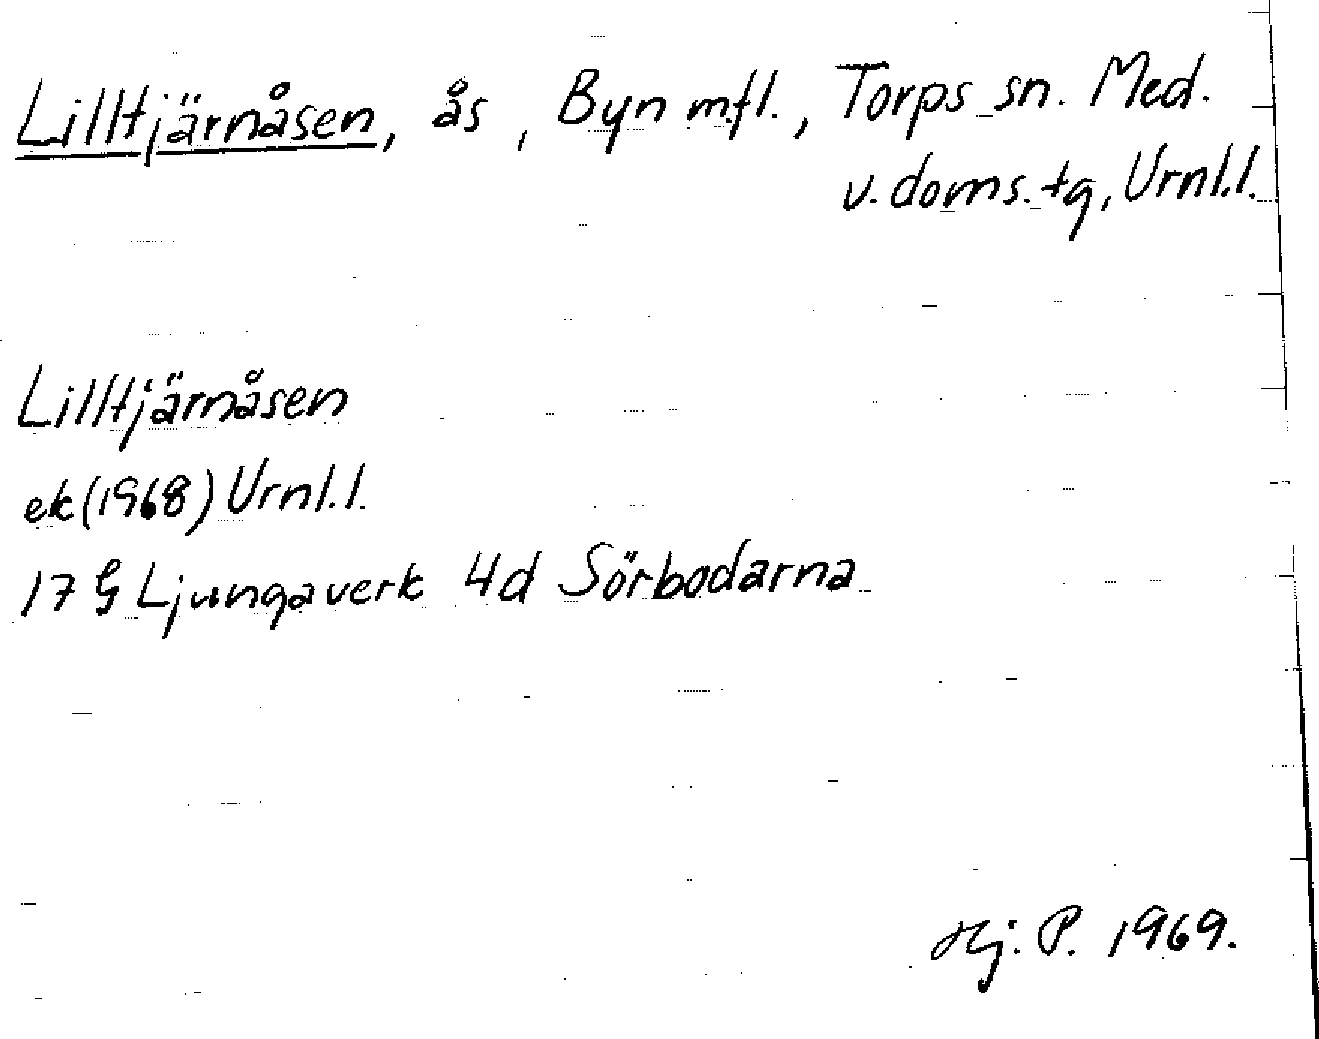 Lilltjärnåsen, ås, Byn m.fl., Torps sn. Med.
v. doms. tg, Urnl.l.
Lilltjärnåsen
ek (1968) Urnl.l.
17 G Ljungaverk 4d Sörbodarna
Hj. P. 1969.